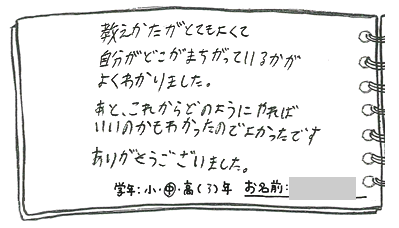 教えかたがとてもよくて
自分がどこがまちがっているかが
よくわかりました。
あと、これからどのようにやれば
いいのかもわかったのでよかったです
ありがとうございました。
学年：小・中・高（3）年 お名前：